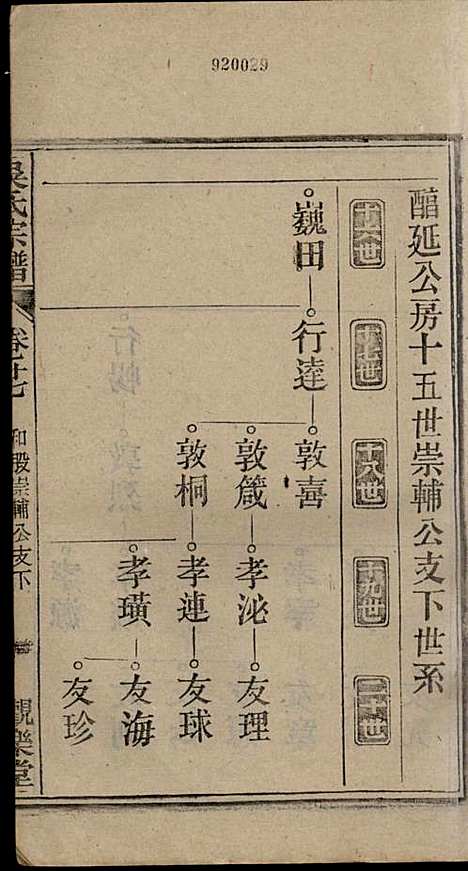 920029
醕延公房十五世崇輔公支下世系
十六世
十七世
十八世
十九世
二十世
巍田
行達
敦喜
敦箴
孝泌
友理
敦桐
孝連
友球
孝璜
友海
友珍
吳氏宗譜
卷廿七
和股崇輔公支下
觀樂堂